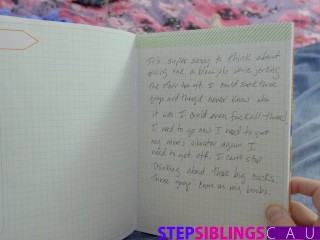 It's super sexy to think about
giving one a blow job while jerking
the other two off. I could suck three
guys and they'd never know who
it was. I could even fuck all three!
I need to go now I need to get
my mom's vibrator again I
need to get off. I can't stop
thinking about three big cocks
three guys' cum on my boobs.
STEPSIBLINGSCAU